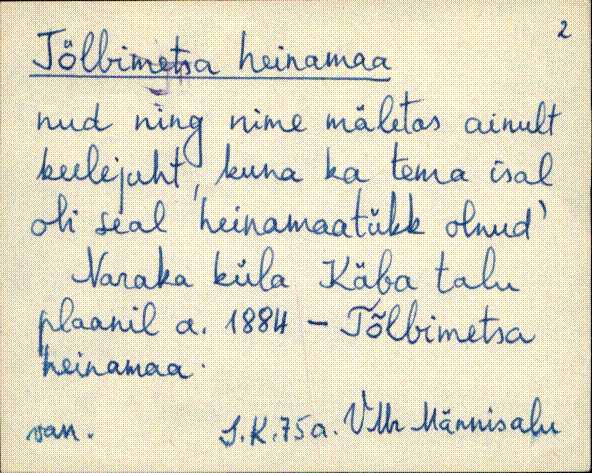 2
Tõlbimetsa heinamaa
nud ning nime mäletas ainult
keelejuht, kuna ka tema isal
oli seal 'heinamaatükk olnud'
Naraka küla Käba talu
plaanil a. 1884 - Tõlbimetsa
heinamaa.
van. S.K. 75a. VMr Männisalu